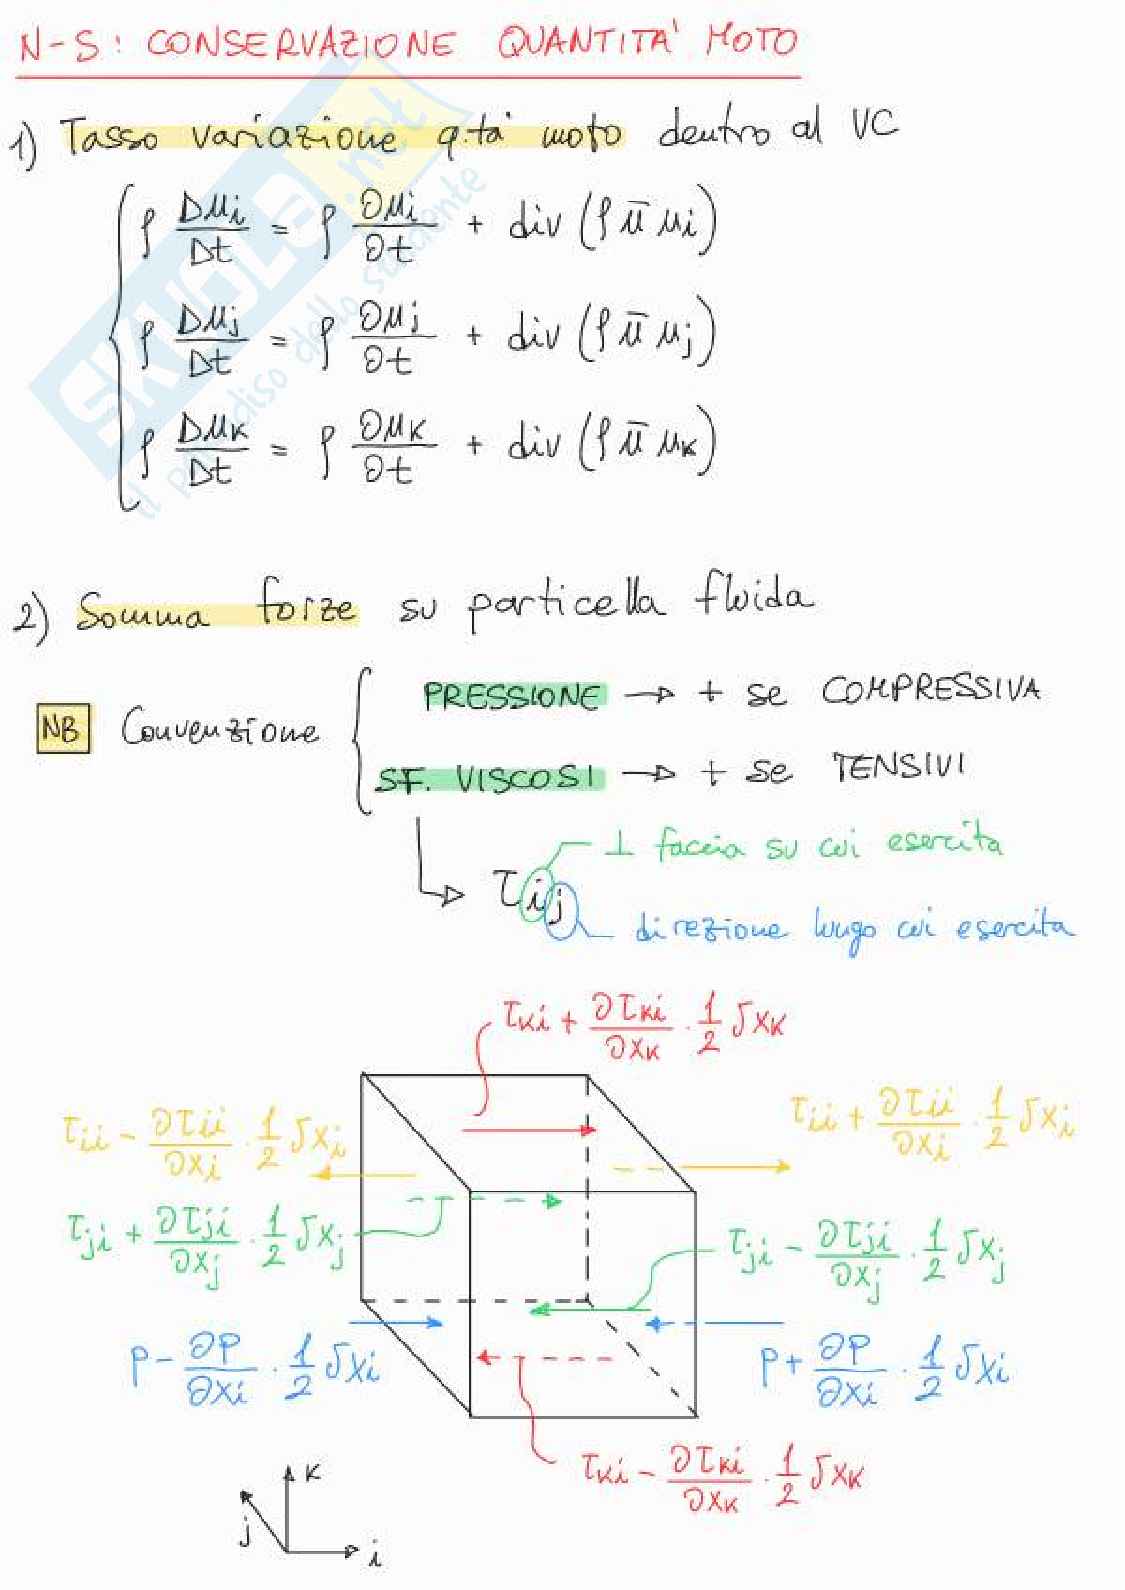 N-S: CONSERVAZIONE QUANTITA' MOTO
1) Tasso variazione q.tà moto dentro al VC
ρ Dui/Dt = ρ ∂ui/∂t + div (ρ ū ui)
ρ Duj/Dt = ρ ∂uj/∂t + div (ρ ū uj)
ρ Duk/Dt = ρ ∂uk/∂t + div (ρ ū uk)
SKUOLA.net
il paradiso dello studente
2) Somma forze su particella fluida
NB Convenzione
PRESSIONE → + se COMPRESSIVA
SF. VISCOSI → + se TENSIVI
⊥ faccia su cui esercita
τij
direzione lungo cui esercita
τki + ∂τki/∂xk · 1/2 δxk
τii - ∂τii/∂xi · 1/2 δxi
τii + ∂τii/∂xi · 1/2 δxi
τji + ∂τji/∂xj · 1/2 δxj
τji - ∂τji/∂xj · 1/2 δxj
p - ∂p/∂xi · 1/2 δxi
p + ∂p/∂xi · 1/2 δxi
τki - ∂τki/∂xk · 1/2 δxk
k
j
i